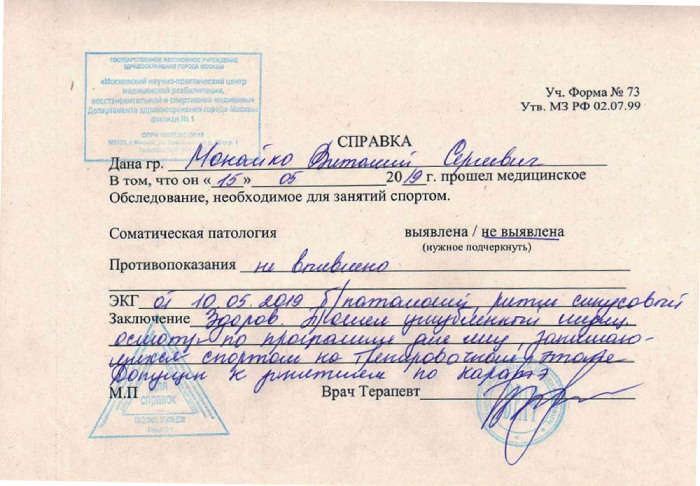 ГОСУДАРСТВЕННОЕ АВТОНОМНОЕ УЧРЕЖДЕНИЕ
ЗДРАВООХРАНЕНИЯ ГОРОДА МОСКВЫ
«Московский научно-практический центр
медицинской реабилитации,
восстановительной и спортивной медицины
Департамента здравоохранения города Москвы
филиал № 1
Уч. Форма № 73
Утв. МЗ РФ 02.07.99
СПРАВКА
Дана гр. Монайко Виталий Сергеевич
В том, что он «15» 05 2019г. прошел медицинское
Обследование, необходимое для занятий спортом.
Соматическая патология выявлена / не выявлена
(нужное подчеркнуть)
Противопоказания не выявлено
ЭКГ от 10.05.2019 б/патологий, ритм синусовый
Заключение Здоров. Прошел углубленный медиц.
осмотр по программе для лиц, занимаю-
щихся спортом на тренировочном этапе
Допущен к занятиям по каратэ
М.П Врач Терапевт
для
справок